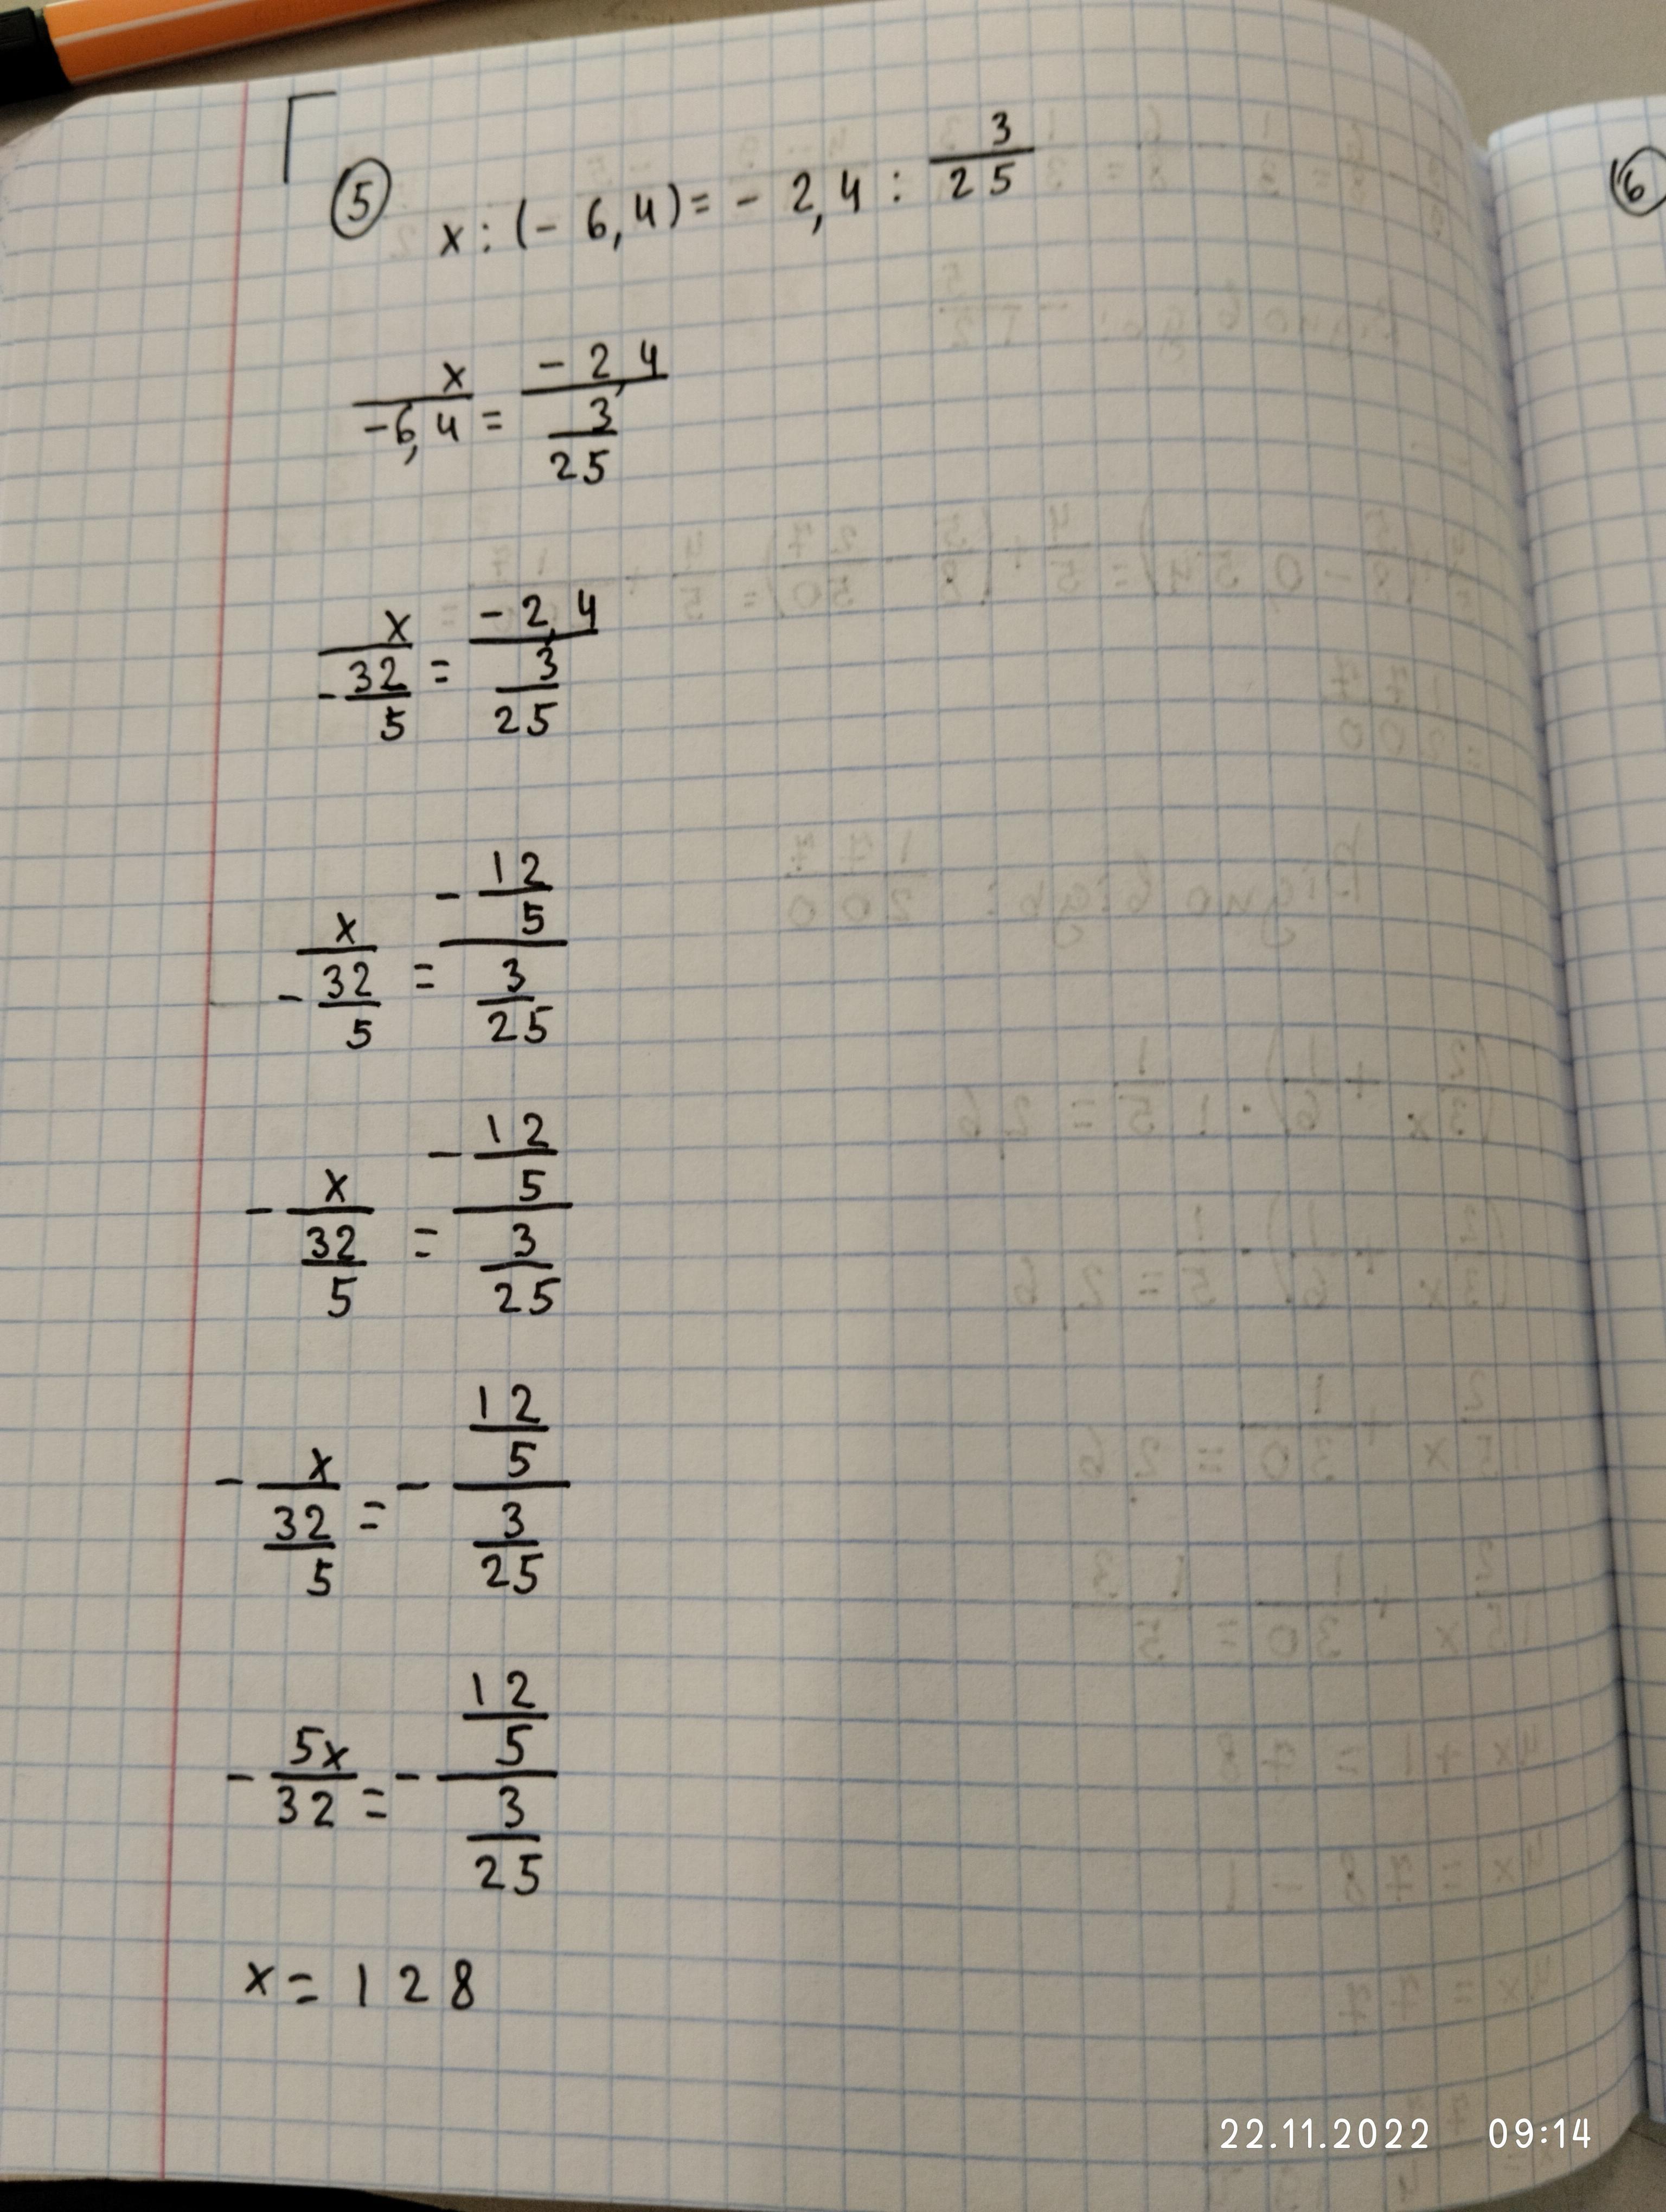 ⑤ x : (- 6,4) = - 2,4 : 3/25
x/-6,4 = -2,4/(3/25)
x/(-32/5) = -2,4/(3/25)
x/(-32/5) = (-12/5)/(3/25)
- x/(32/5) = (-12/5)/(3/25)
- x/(32/5) = - (12/5)/(3/25)
- 5x/32 = - (12/5)/(3/25)
x = 128
⑥
22.11.2022 09:14